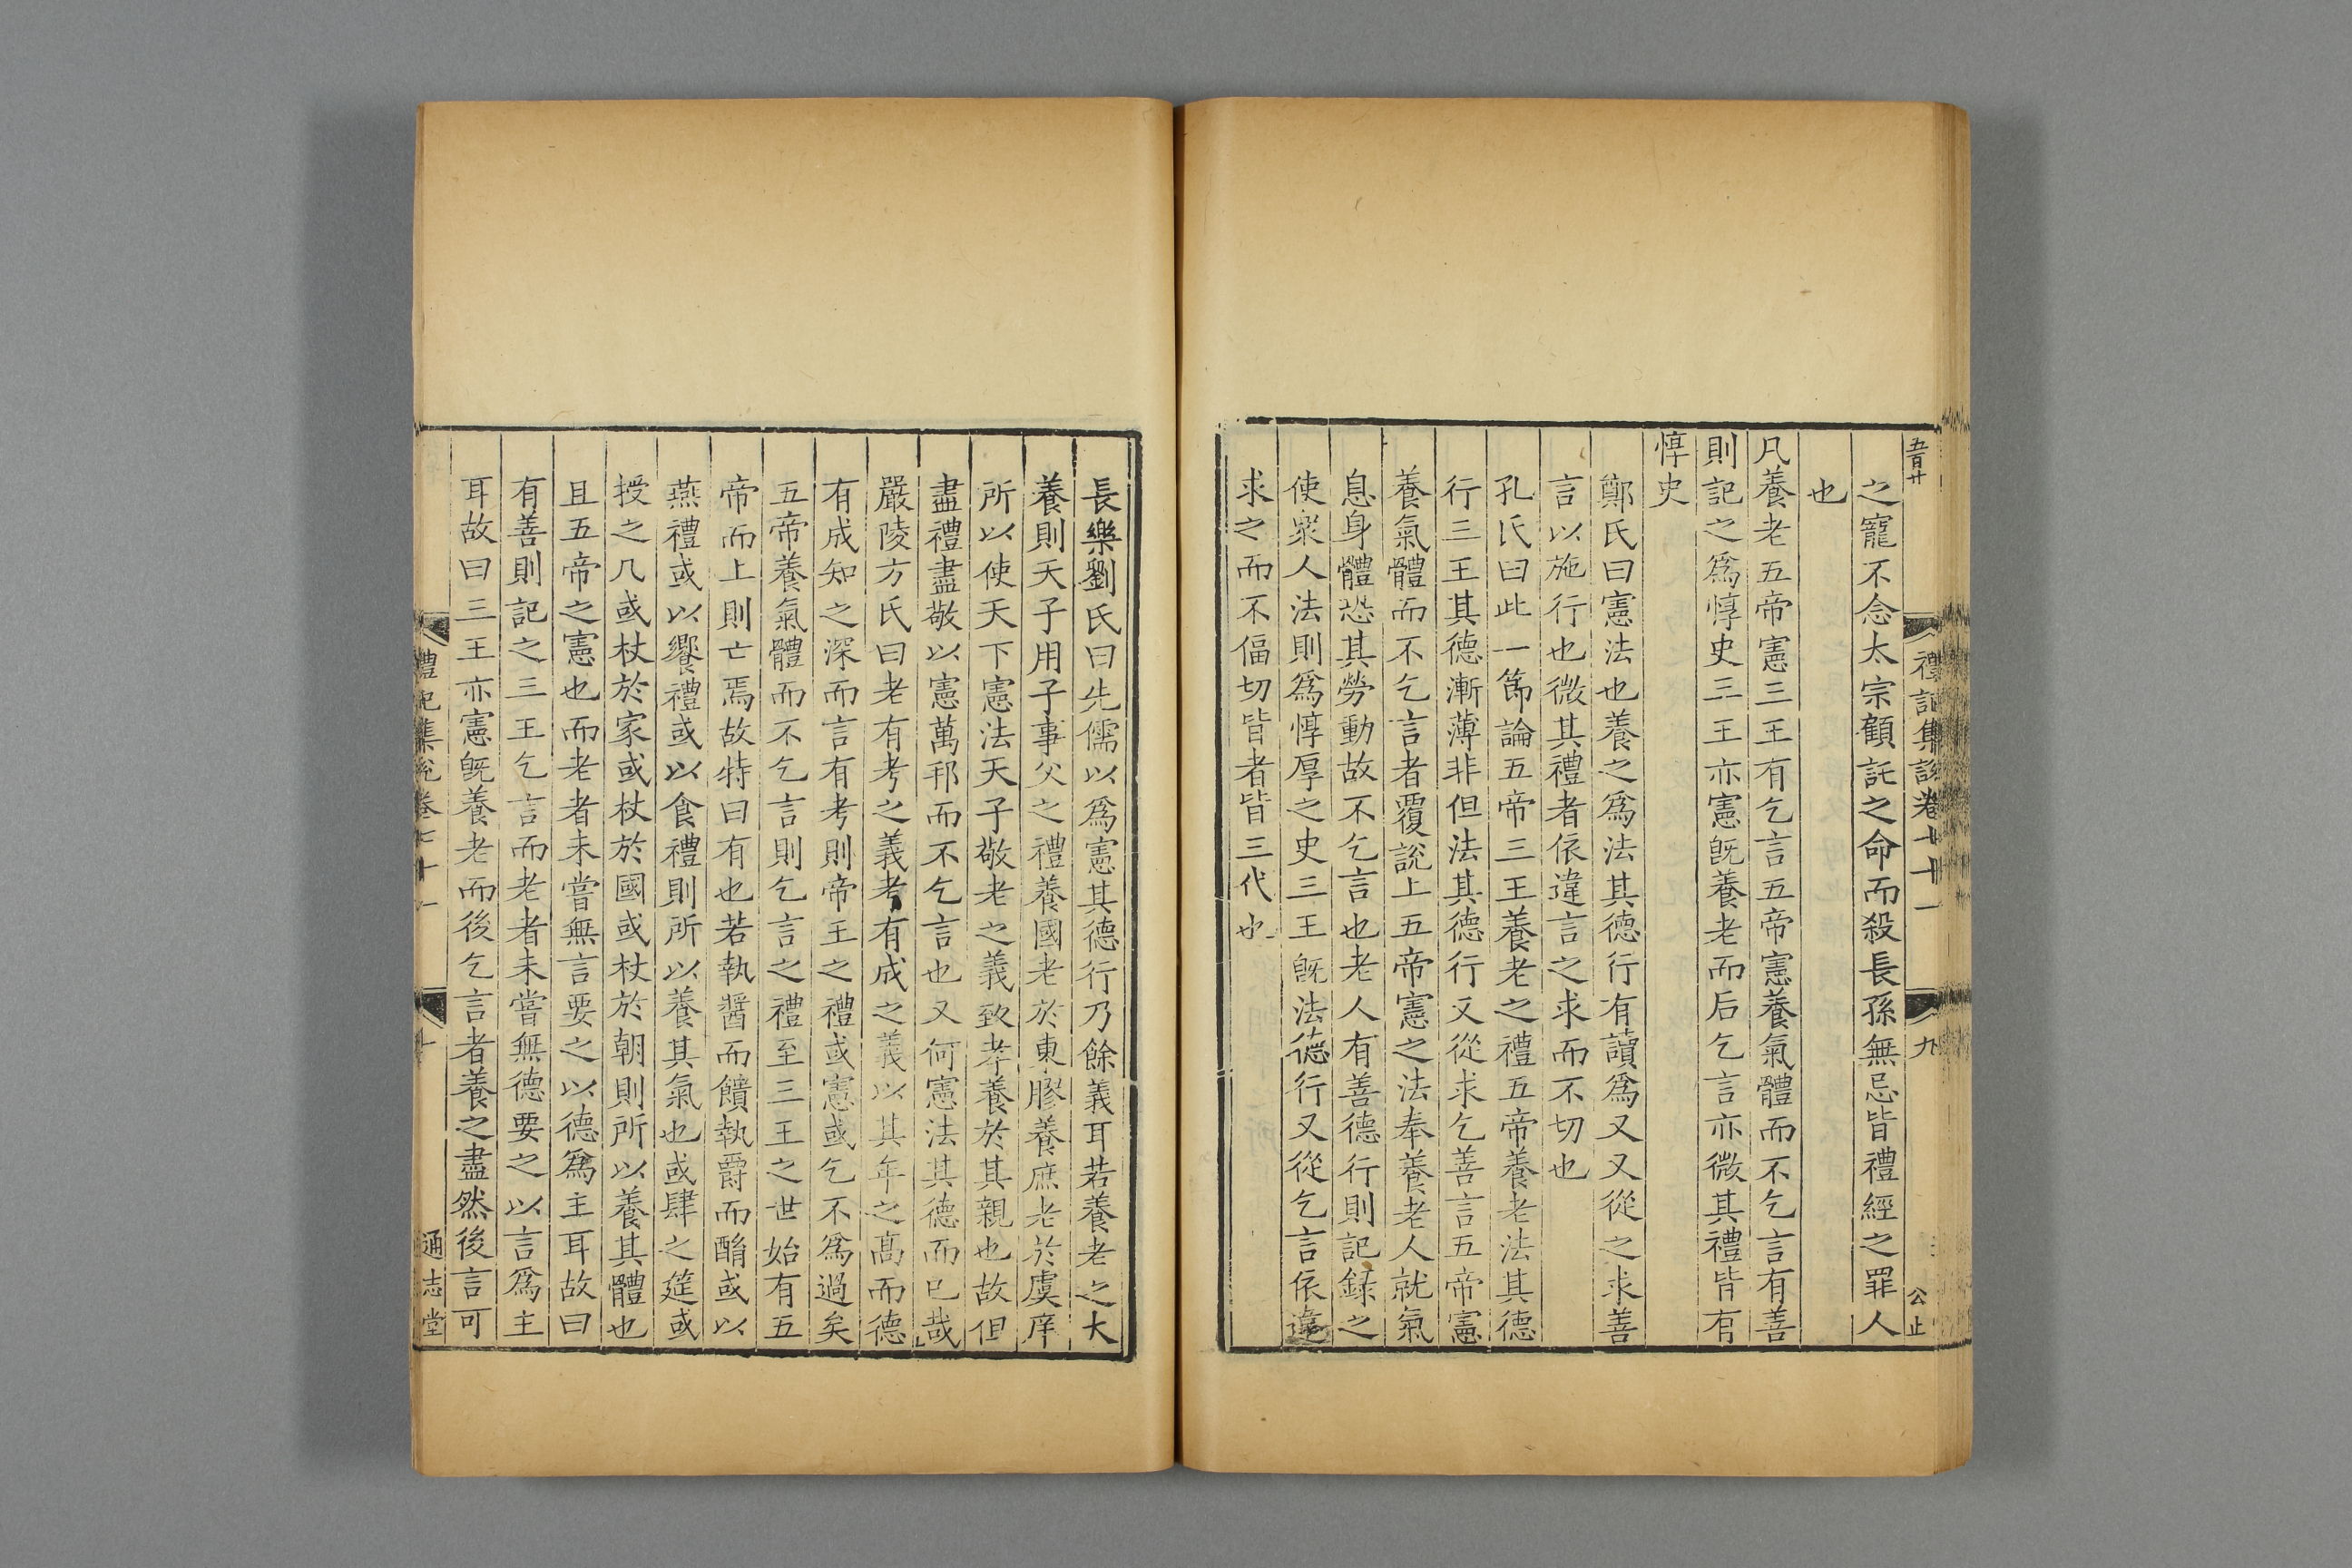 五百廿
禮記集說卷七十一
九
公止
之寵不念太宗顧託之命而殺長孫無忌皆禮經之罪人
也
凡養老五帝憲三王有乞言五帝憲養氣體而不乞言有善
則記之爲惇史三王亦憲旣養老而后乞言亦微其禮皆有
惇史
鄭氏曰憲法也養之爲法其德行有讀爲又又從之求善
言以施行也微其禮者依違言之求而不切也
孔氏曰此一節論五帝三王養老之禮五帝養老法其德
行三王其德漸薄非但法其德行又從求乞善言五帝憲
養氣體而不乞言者覆說上五帝憲之法奉養老人就氣
息身體恐其勞動故不乞言也老人有善德行則記録之
使衆人法則爲惇厚之史三王旣法德行又從乞言依違
求之而不偪切皆者皆三代也
長樂劉氏曰先儒以爲憲其德行乃餘義耳若養老之大
養則天子用子事父之禮養國老於東膠養庶老於虞庠
所以使天下憲法天子敬老之義致孝養於其親也故但
盡禮盡敬以憲萬邦而不乞言也又何憲法其德而已哉
嚴陵方氏曰老有考之義考有成之義以其年之高而德
有成知之深而言有考則帝王之禮或憲或乞不爲過矣
五帝養氣體而不乞言則乞言之禮至三王之世始有五
帝而上則亡焉故特曰有也若執醬而饋執爵而酳或以
燕禮或以饗禮或以食禮則所以養其氣也或肆之筵或
授之几或杖於家或杖於國或杖於朝則所以養其體也
且五帝之憲也而老者未嘗無言要之以德爲主耳故曰
有善則記之三王乞言而老者未嘗無德要之以言爲主
耳故曰三王亦憲旣養老而後乞言者養之盡然後言可
禮記集說卷七十一
十
通志堂